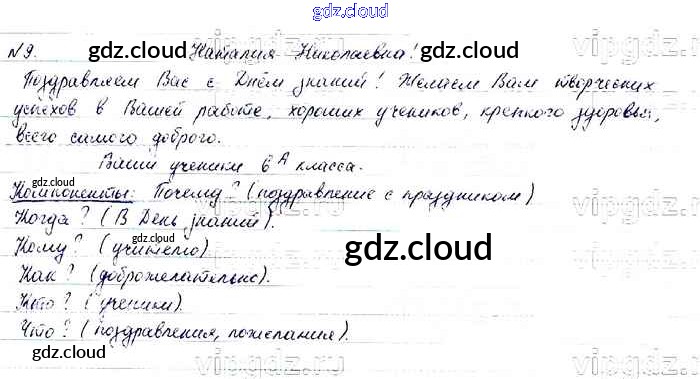 gdz.cloud
№9. gdz.cloud Наталия Николаевна! gdz.cloud
Поздравляем Вас с Днём знаний! Желаем Вам творческих
успехов в Вашей работе, хороших учеников, крепкого здоровья,
всего самого доброго.
Ваши ученики 6А класса.
gdz.cloud
Компоненты: Почему? (поздравление с праздником)
Когда? (В День знаний).
Кому? (учителю) gdz.cloud
Как? (доброжелательно). gdz.cloud
Кто? (ученики).
Что? (поздравления, пожелания).
gdz.cloud gdz.cloud
vipgdz.ru